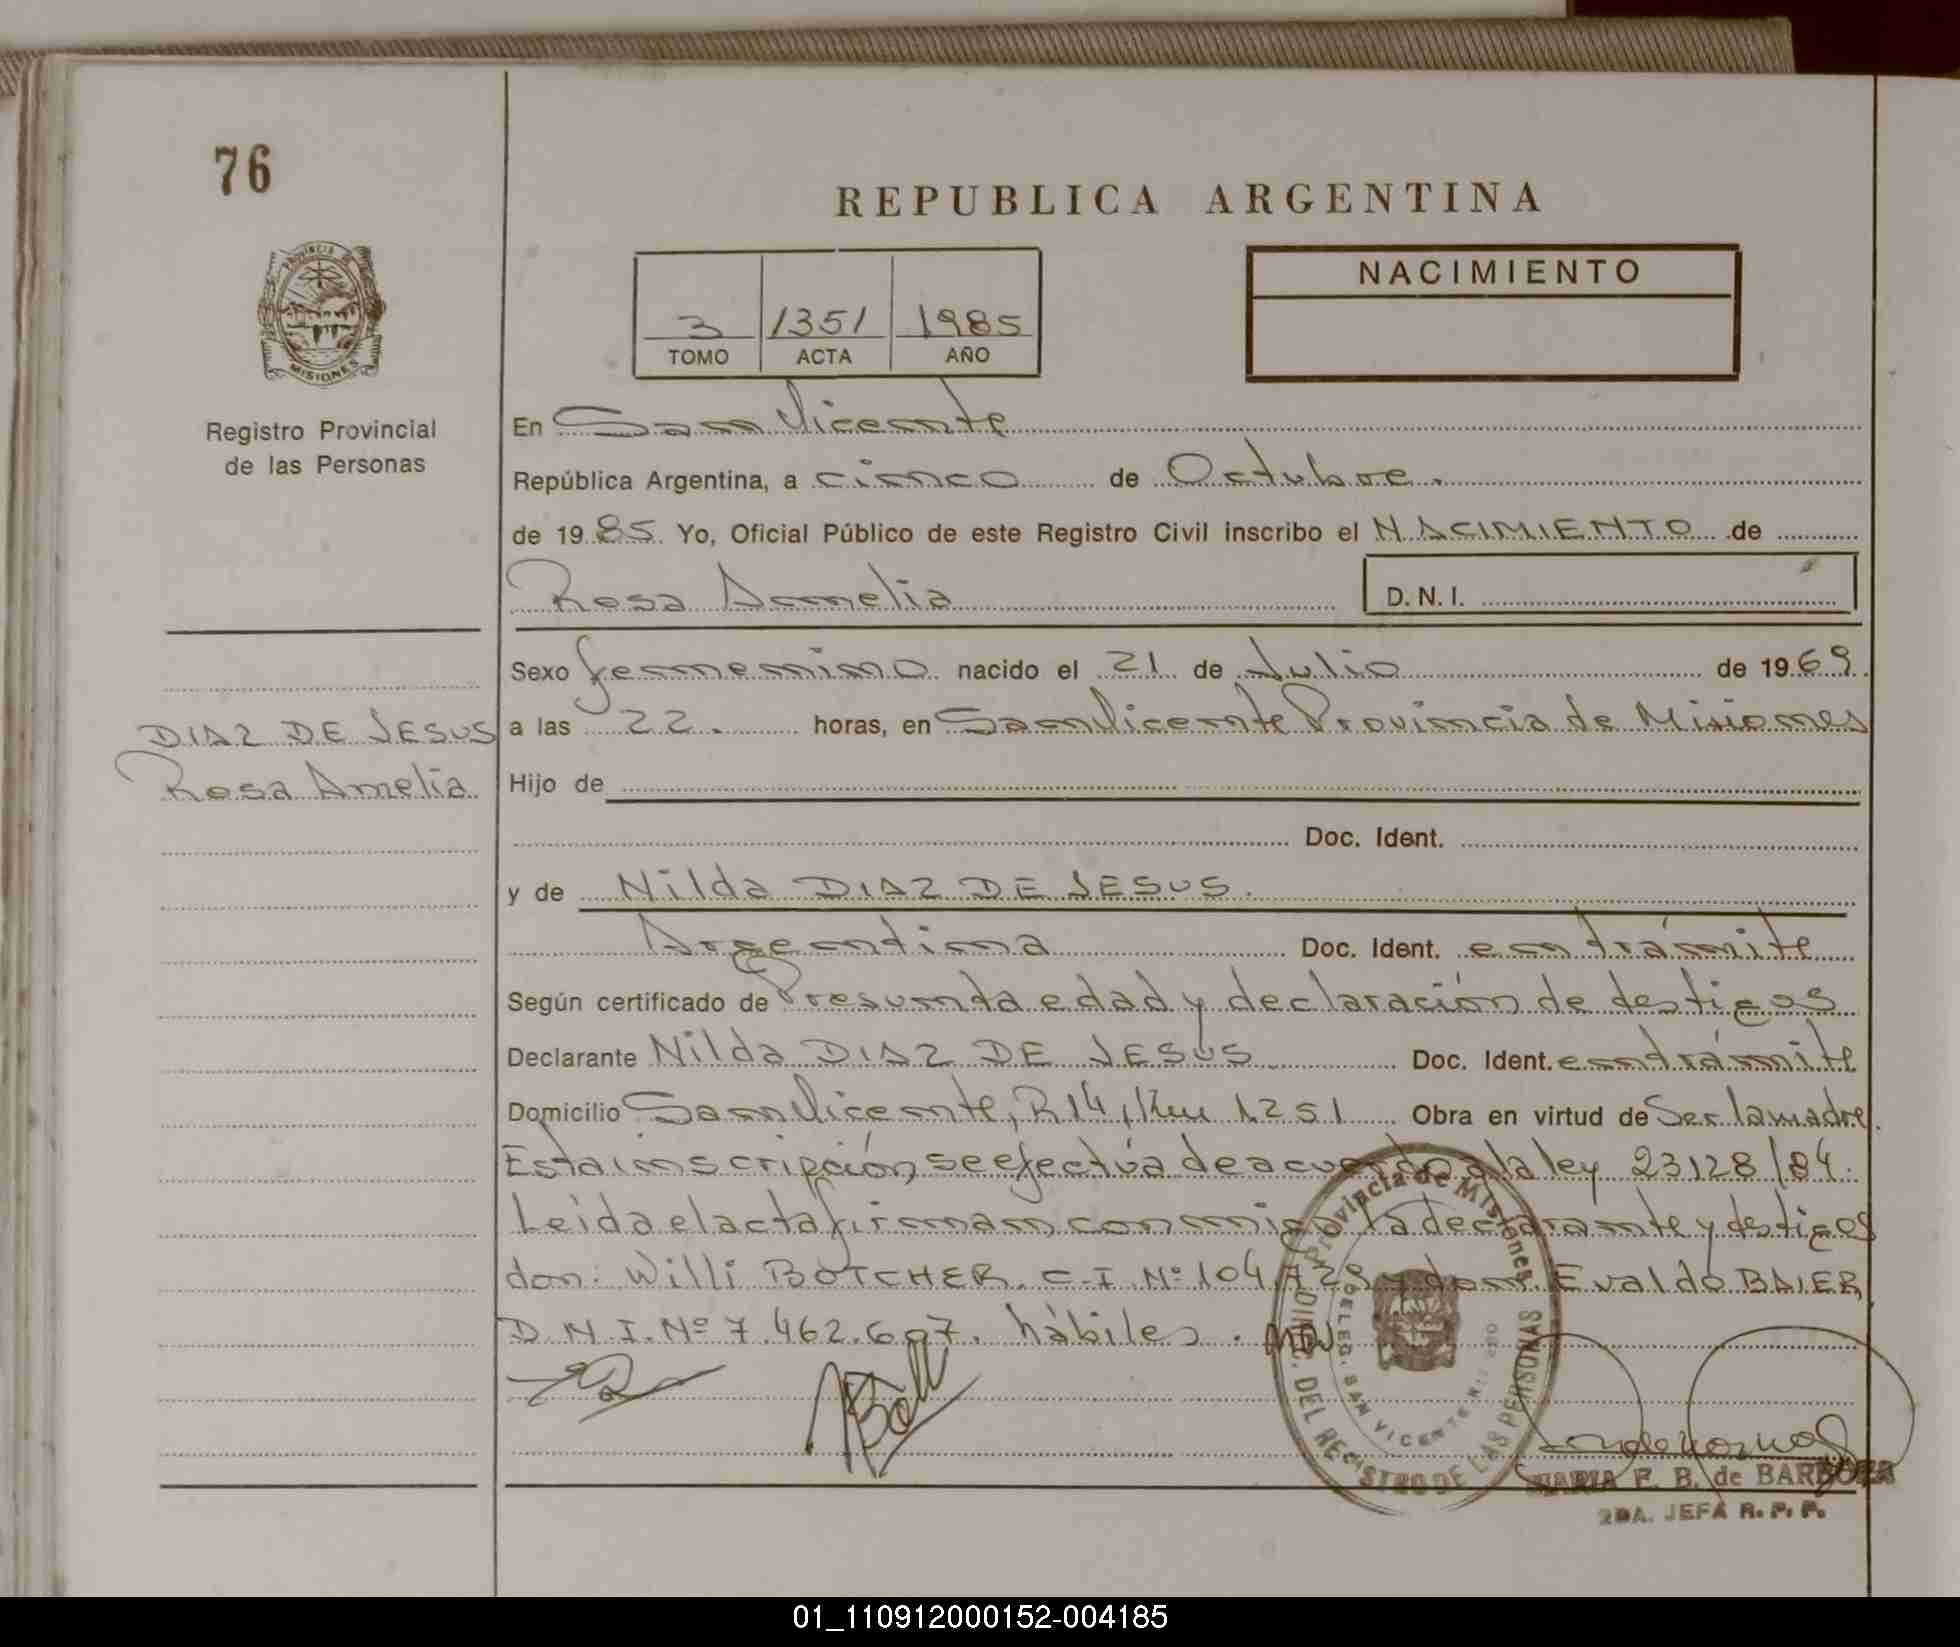 76
REPUBLICA ARGENTINA
PROVINCIA DE
MISIONES
Registro Provincial
de las Personas
3 1351 1985
TOMO ACTA AÑO
NACIMIENTO
En San Vicente
República Argentina, a cinco de Octubre.
de 1985. Yo, Oficial Público de este Registro Civil inscribo el NACIMIENTO de
Rosa Amelia D.N.I.
Sexo femenino nacido el 21 de Julio de 1969
DIAZ DE JESUS
Rosa Amelia
a las 22. horas, en San Vicente Provincia de Misiones
Hijo de
Doc. Ident.
y de Nilda DIAZ DE JESUS.
Argentina Doc. Ident. en trámite
Según certificado de Presunta edad y declaración de testigos
Declarante Nilda DIAZ DE JESUS Doc. Ident. en trámite
Domicilio San Vicente, R 14, Km 1251 Obra en virtud de Ser la madre.
Esta inscripción se efectúa de acuerdo a la ley 23128/84.
Leída el acta firman conmigo la declarante y testigos
don: Willi BOTCHER. C.I. Nº 104.729 y don: Evaldo BAIER
D.N.I. Nº 7.462.607. hábiles.
Provincia de Misiones
DIREC. DEL REGISTRO DE LAS PERSONAS
DELEG. SAN VICENTE
MARIA F. B. de BARBOZA
2DA. JEFA R. P. P.
01_110912000152-004185